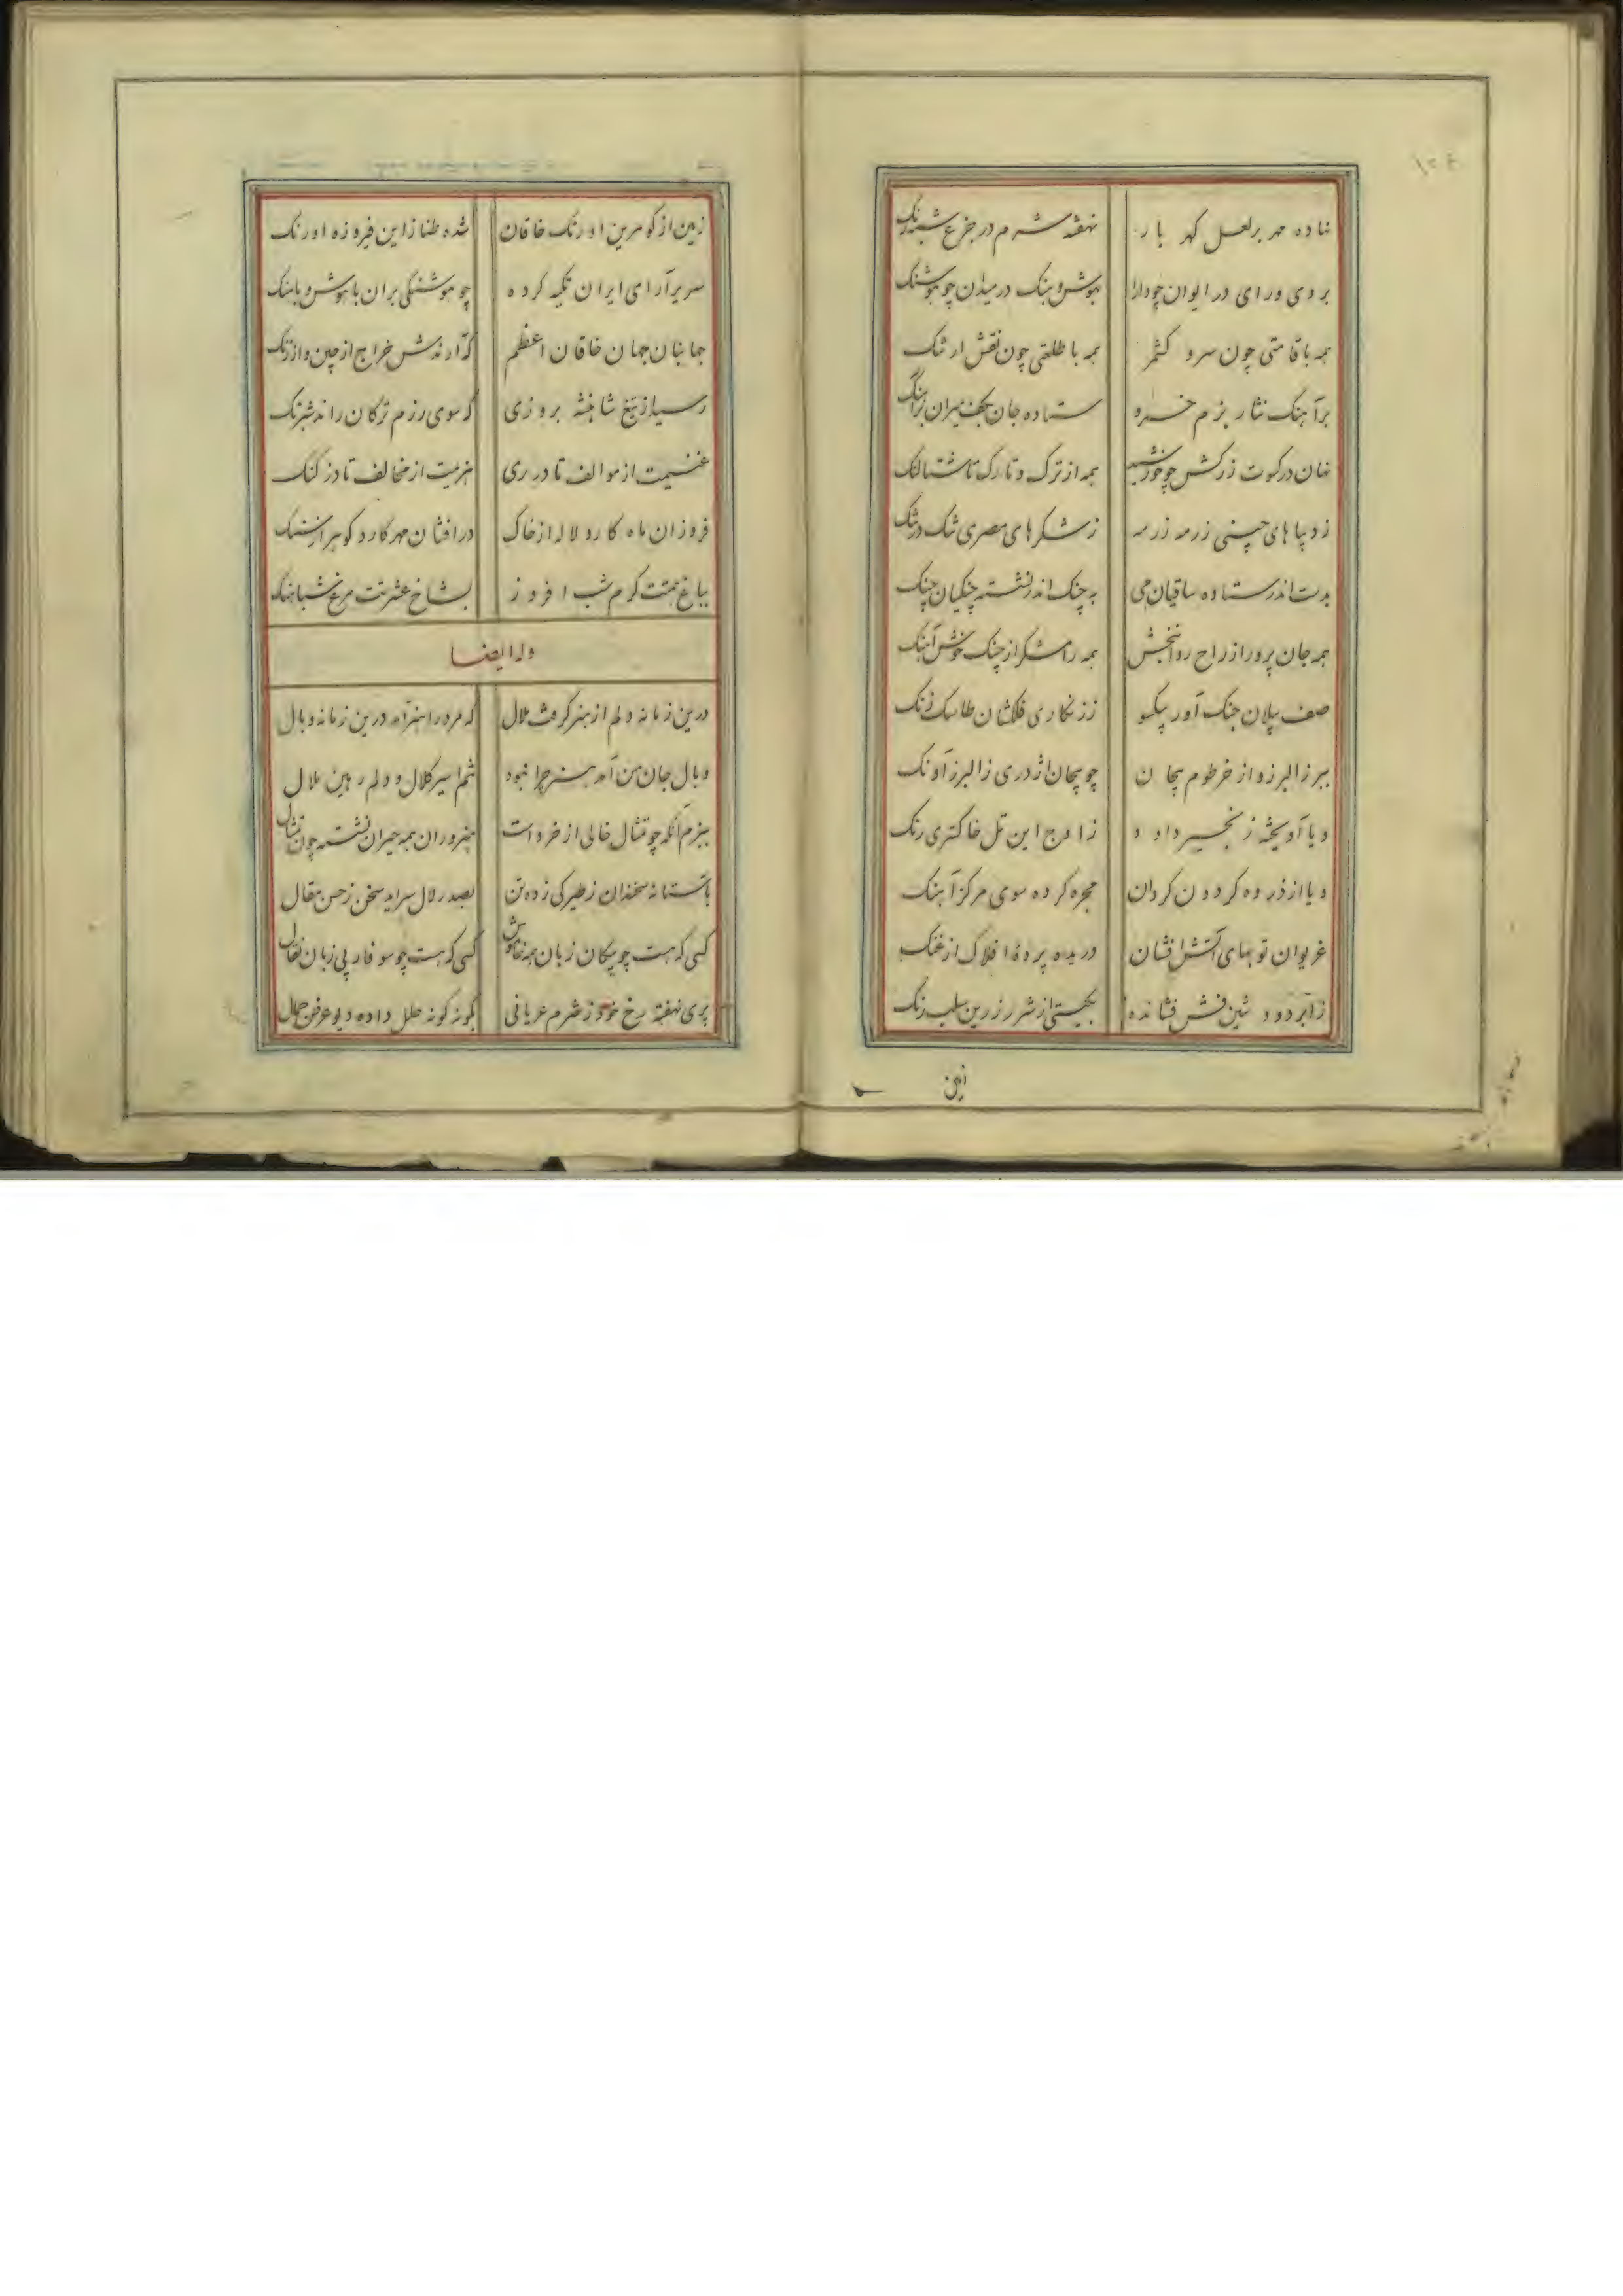 نهاده مهر بر لعل گهر بار نهفته شرم در جزع شبه رنگ
بروی و رای در ایوان چو دارا بهوش و هنک در میدان چو هوشنک
همه با قامتی چون سرو کشمر همه با طلعتی چون نقش ارتنک
بر آهنک نثار بزم خسرو ستاده جان بکف میران
نهان در کسوت زرکش چو خورشید همه از ترک و تارک تا شتالنک
ز دیباهای چینی زرمه زرمه ز شکرهای مصری تنک در تنک
بدست اندر ستاده ساقیان می به چنک اندر نشسته چنکیان چنک
همه جان پرور از راح روانبخش همه رامشکر از چنک خوش آهنک
صف پیلان جنک آور بیکسو ز زنکاری فلکشان طاسک زنک
ببر ز البرز و از خرطوم پیچان چو پیچان اژدری ز البرز آونک
و یا آویخته زنجیر داود ز اوج این تل خاکستری رنک
و یا از ذروه کردون کردان مجره کرده سوی مرکز آهنک
غریوان توپهای آتش افشان دریده پرده افلاک از غنک
ز ابر دود تنین فش فشانده بکیتی از شرر زرین سلب رنک
زمین
زمین از کوهرین اورنک خاقان شده طناز از این فیروزه اورنک
سریر آرای ایران تکیه کرده چو هوشنکی بران با هوش و با هنک
جهانبان جهان خاقان اعظم که آرندش خراج از چین و از زنک
رسید از تیغ شاهنشه بروزی که سوی رزم ترکان راند شبرنک
غنیمت از موالف تا در ری هزیمت از مخالف تا دز کنک
فروزان ماه کارد لاله از خاک درافشان مهر کارد کوهر از سنک
بباغ همتت کرم شب افروز بشاخ عشرتت مرغ شباهنک
وله ایضا
درین زمانه دلم از هنر کرفت ملال که مرد را هنر آمد درین زمانه وبال
وبال جان من آمد هنر چرا نبود تنم اسیر کلال و دلم رهین ملال
ببزم آنکه چو تمثال خالی از خرد است هنروران همه حیران نشسته چون تمثال
باستانه سخندان ز طیرکی زده تن بصدر لال سراید سخن ز حسن مقال
کسی که هست چو پیکان زبان همه خاموش کسی که هست چو سوفار بی زبان نقال
پری نهفته رخ خود ز شرم عریانی بکونه کونه حلل داده دیو عرض جمال